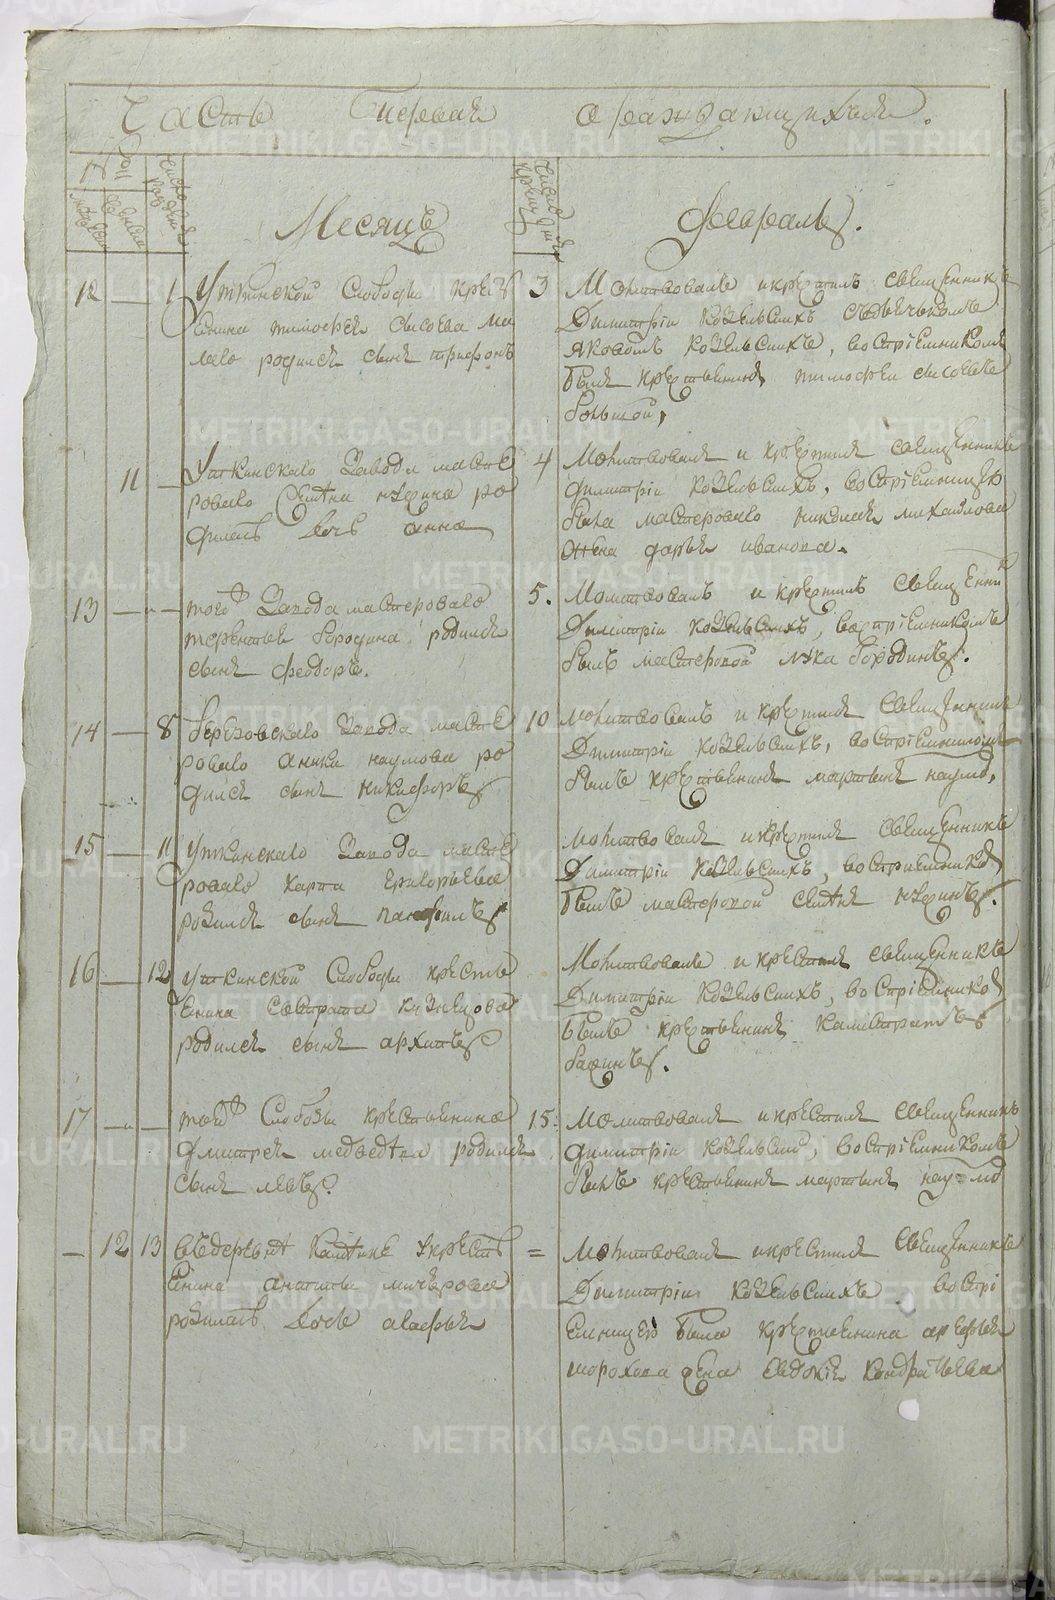 Часть Первая о раждающихся.
Месяцъ Февраль.
12 — 1 Уткинской Слободы кресть
янина тимофея сысоева ма
лаго родился сынъ трифонъ
3 Молитвовалъ и крестилъ священникъ
Димитрій козельскихъ съ дьячькомъ
яковомъ козельскихъ, воспріемникомъ
былъ крестьянинъ тимофей сысоевъ
большой,
11 — Уткинскаго Завода масте
роваго Семена
родилась дочь анна
4 Молитвовалъ и крестилъ священникъ
димитрій козельскихъ, воспріемницею
была мастероваго николая михайлова
жена дарья иванова.
13 — „ — тогожъ Завода мастероваго
терентья бородина родился
сынъ феодоръ.
5. Молитвовалъ и крестилъ священникъ
Димитрій козельскихъ, воспріемникомъ
былъ мастеровой лука бородинъ.
14 — 8 березовскаго Завода масте
роваго аники наумова ро
дился сынъ никифоръ
10 молитвовалъ и крестилъ священникъ
Димитрій козельскихъ, воспріемникомъ
былъ крестьянинъ мартынъ наумо,
15 — 11 Уткинскаго Завода масте
роваго карпа григорьева
родился сынъ панфилъ
молитвовалъ и крестилъ священникъ
Димитрій козельскихъ, воспріемникомъ
былъ мастеровой семенъ
16 — 12 уткинской Слободы кресть
янина кузнецова
родился сынъ архипъ
Молитвовалъ и крестилъ священникъ
Димитрій козельскихъ, воспріемникомъ
былъ крестьянинъ калистратъ
17 — „ — тойжъ Слободы крестьянина
дмитрея медведева родился
сынъ левъ.
15. Молитвовалъ и крестилъ священникъ
димитрій козельских, воспріемникомъ
былъ крестьянинъ мартынъ наумо
— 12 13 въ деревне у кресть
янина
родилась дочь агафья
= Молитвовалъ и крестилъ священникъ
Димитрій козельскихъ воспрі
емницею была крестьянина арефья
шорохова жена евдокія кондратьева
METRIKI.GASO-URAL.RU